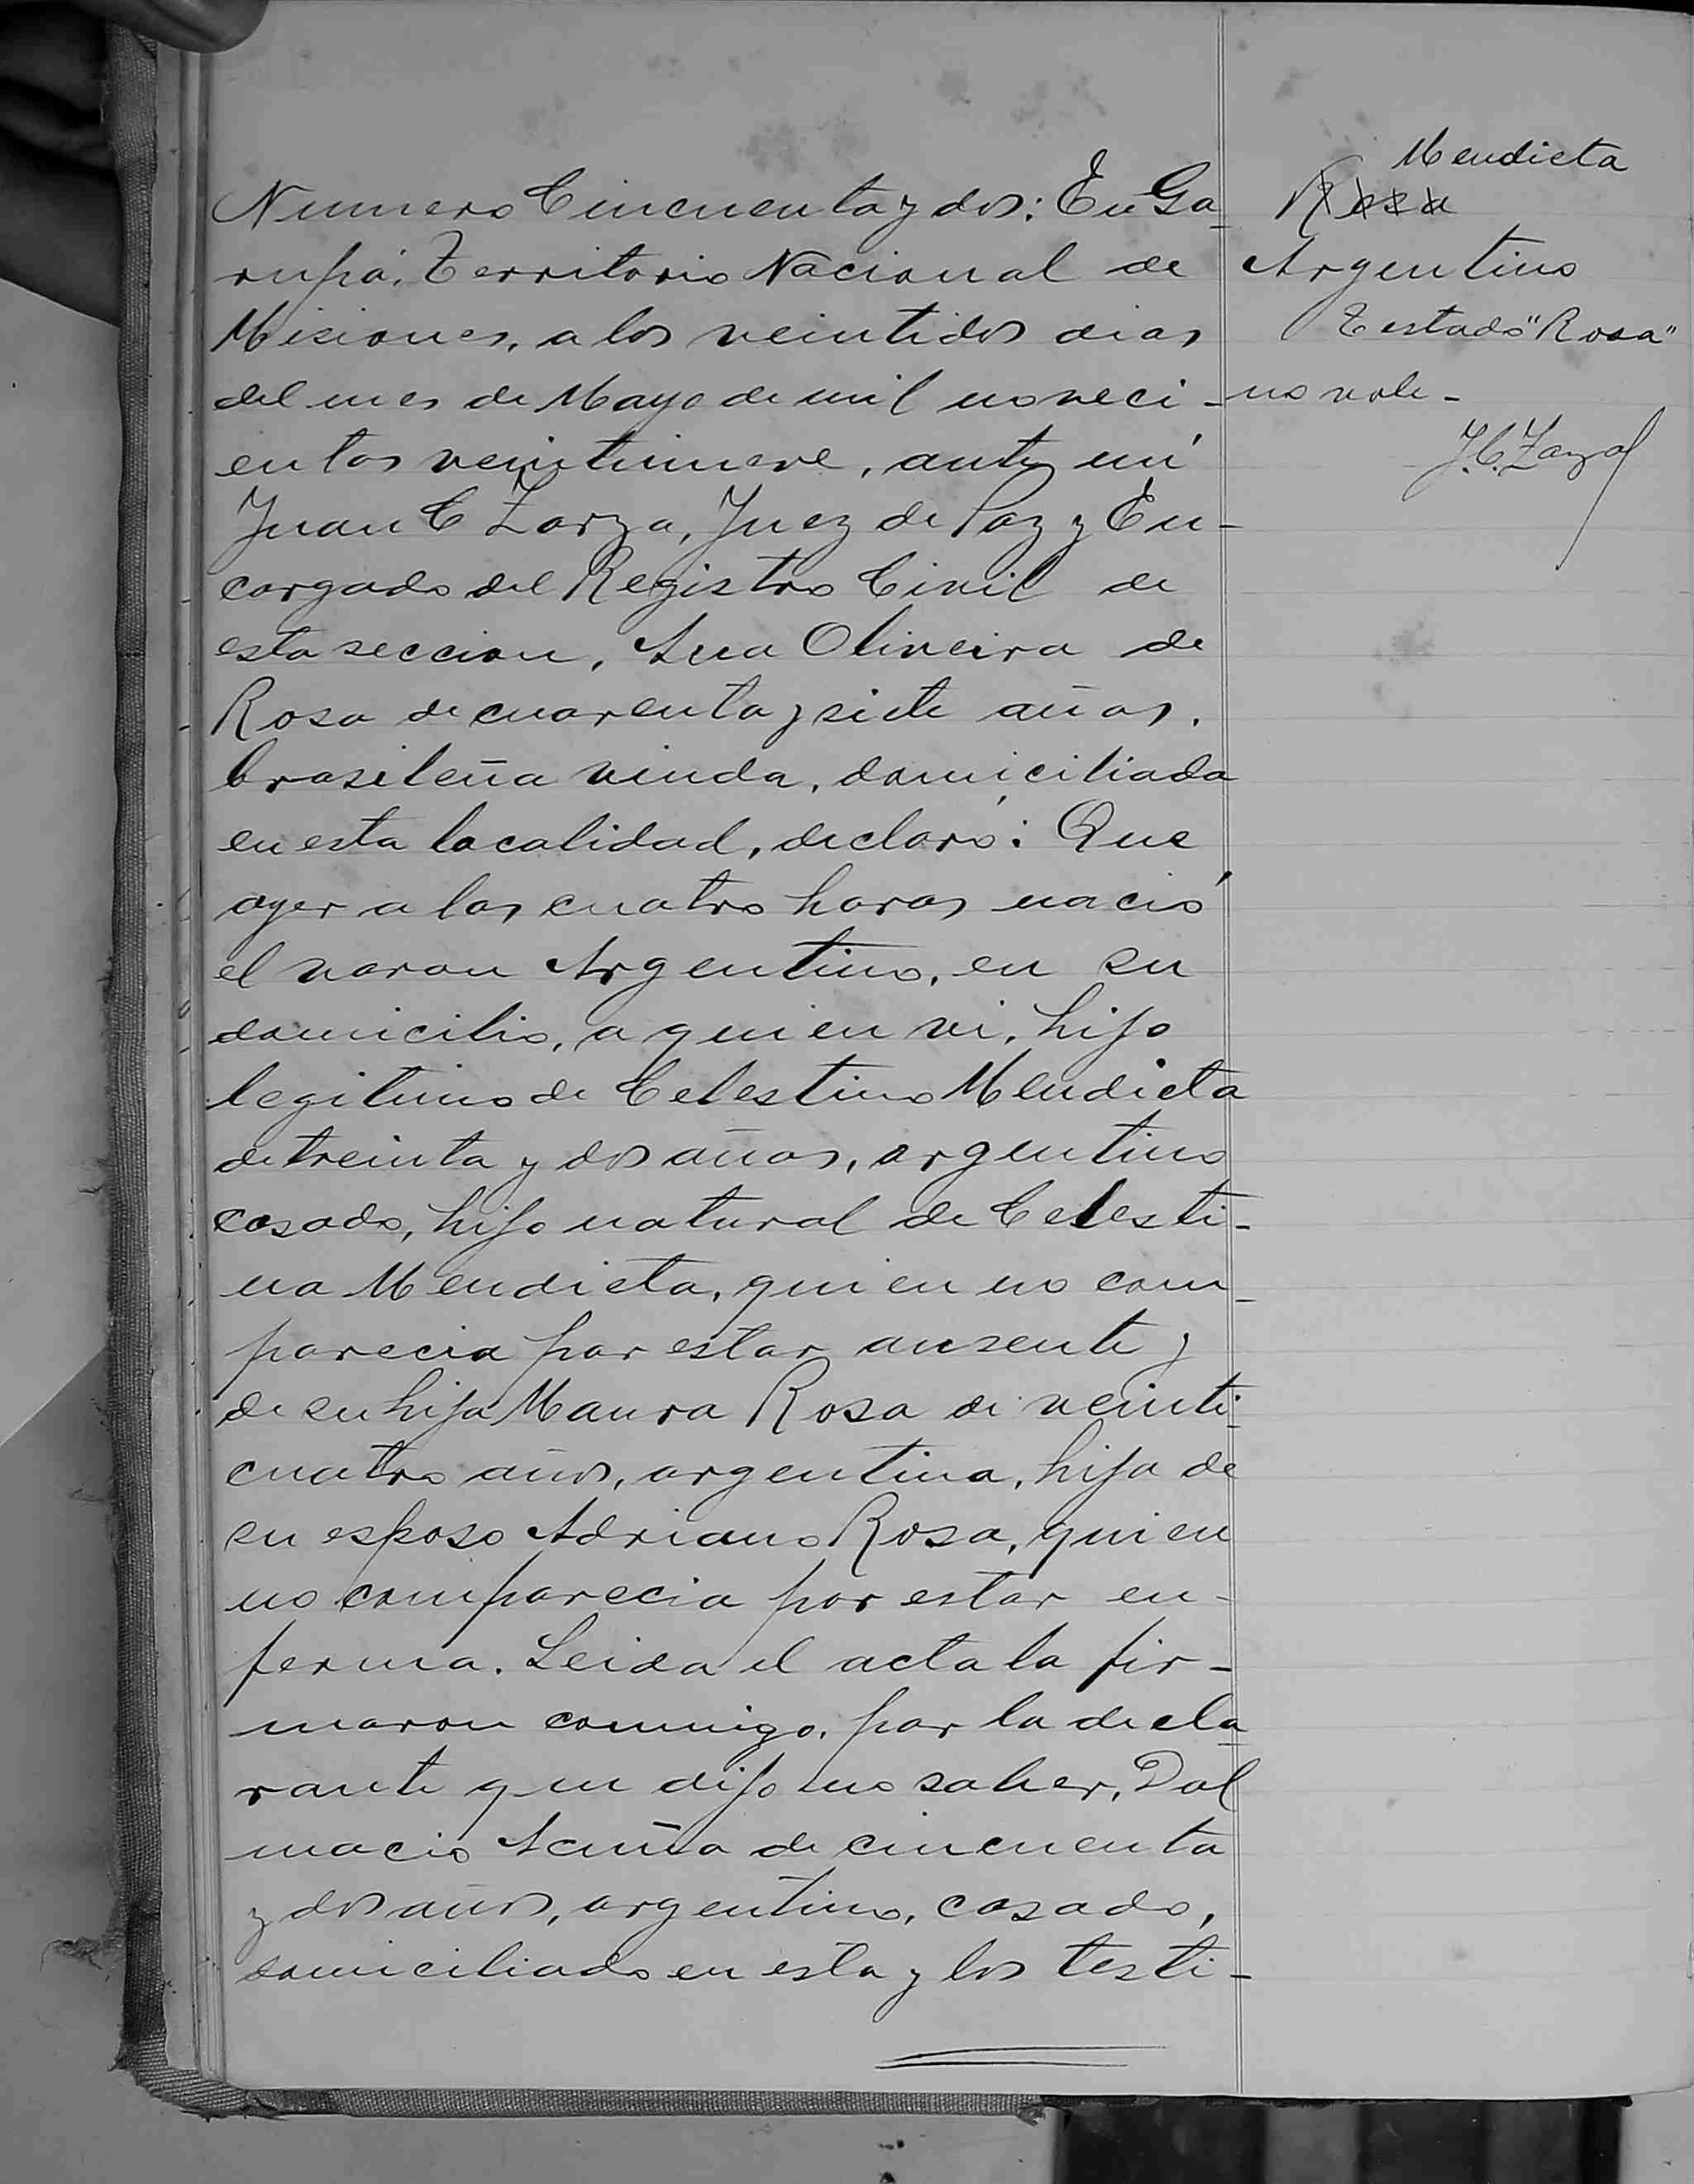 Numero Cincuenta y dos: En Ga-
rupá, Territorio Nacional de
Misiones, a los veintidos dias
del mes de Mayo de mil noveci-
entos veintinueve, ante mí
Juan C Zarza, Juez de Paz y En-
cargado del Registro Civil de
esta seccion, Ana Oliveira de
Rosa de cuarenta y siete años,
brasileña viuda, domiciliada
en esta localidad, declaró: Que
ayer a las cuatro horas nació
el varon Argentino, en su
domicilio, a quien vi, hijo
legitimo de Celestino Mendieta
de treinta y dos años, argentino
casado, hijo natural de Celesti-
na Mendieta, quien no com-
parecia por estar ausente y
de su hija Maura Rosa de veinti-
cuatro años, argentina, hija de
su esposo Adriano Rosa, quien
no comparecia por estar en-
ferma. Leida el acta la fir-
maron conmigo, por la decla-
rante que dijo no saber, Dal
macio Acuña de cincuenta
y dos años, argentino, casado,
domiciliado en esta y los testi-
Mendieta
Rosa
Argentino
Testado "Rosa"
no vale-
J. C. Zarza